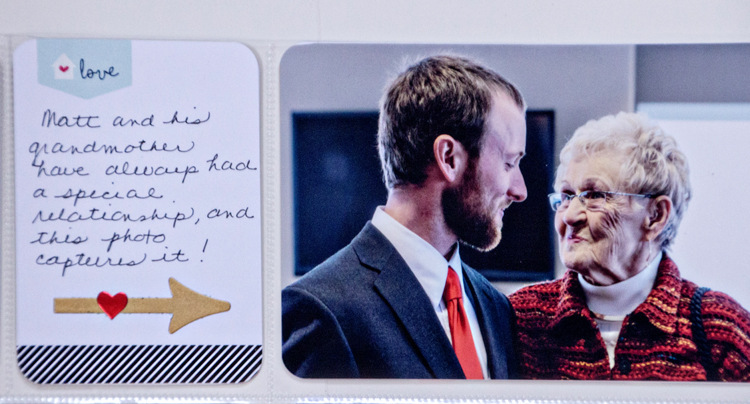 love
Matt and his
grandmother
have always had
a special
relationship, and
this photo
captures it!